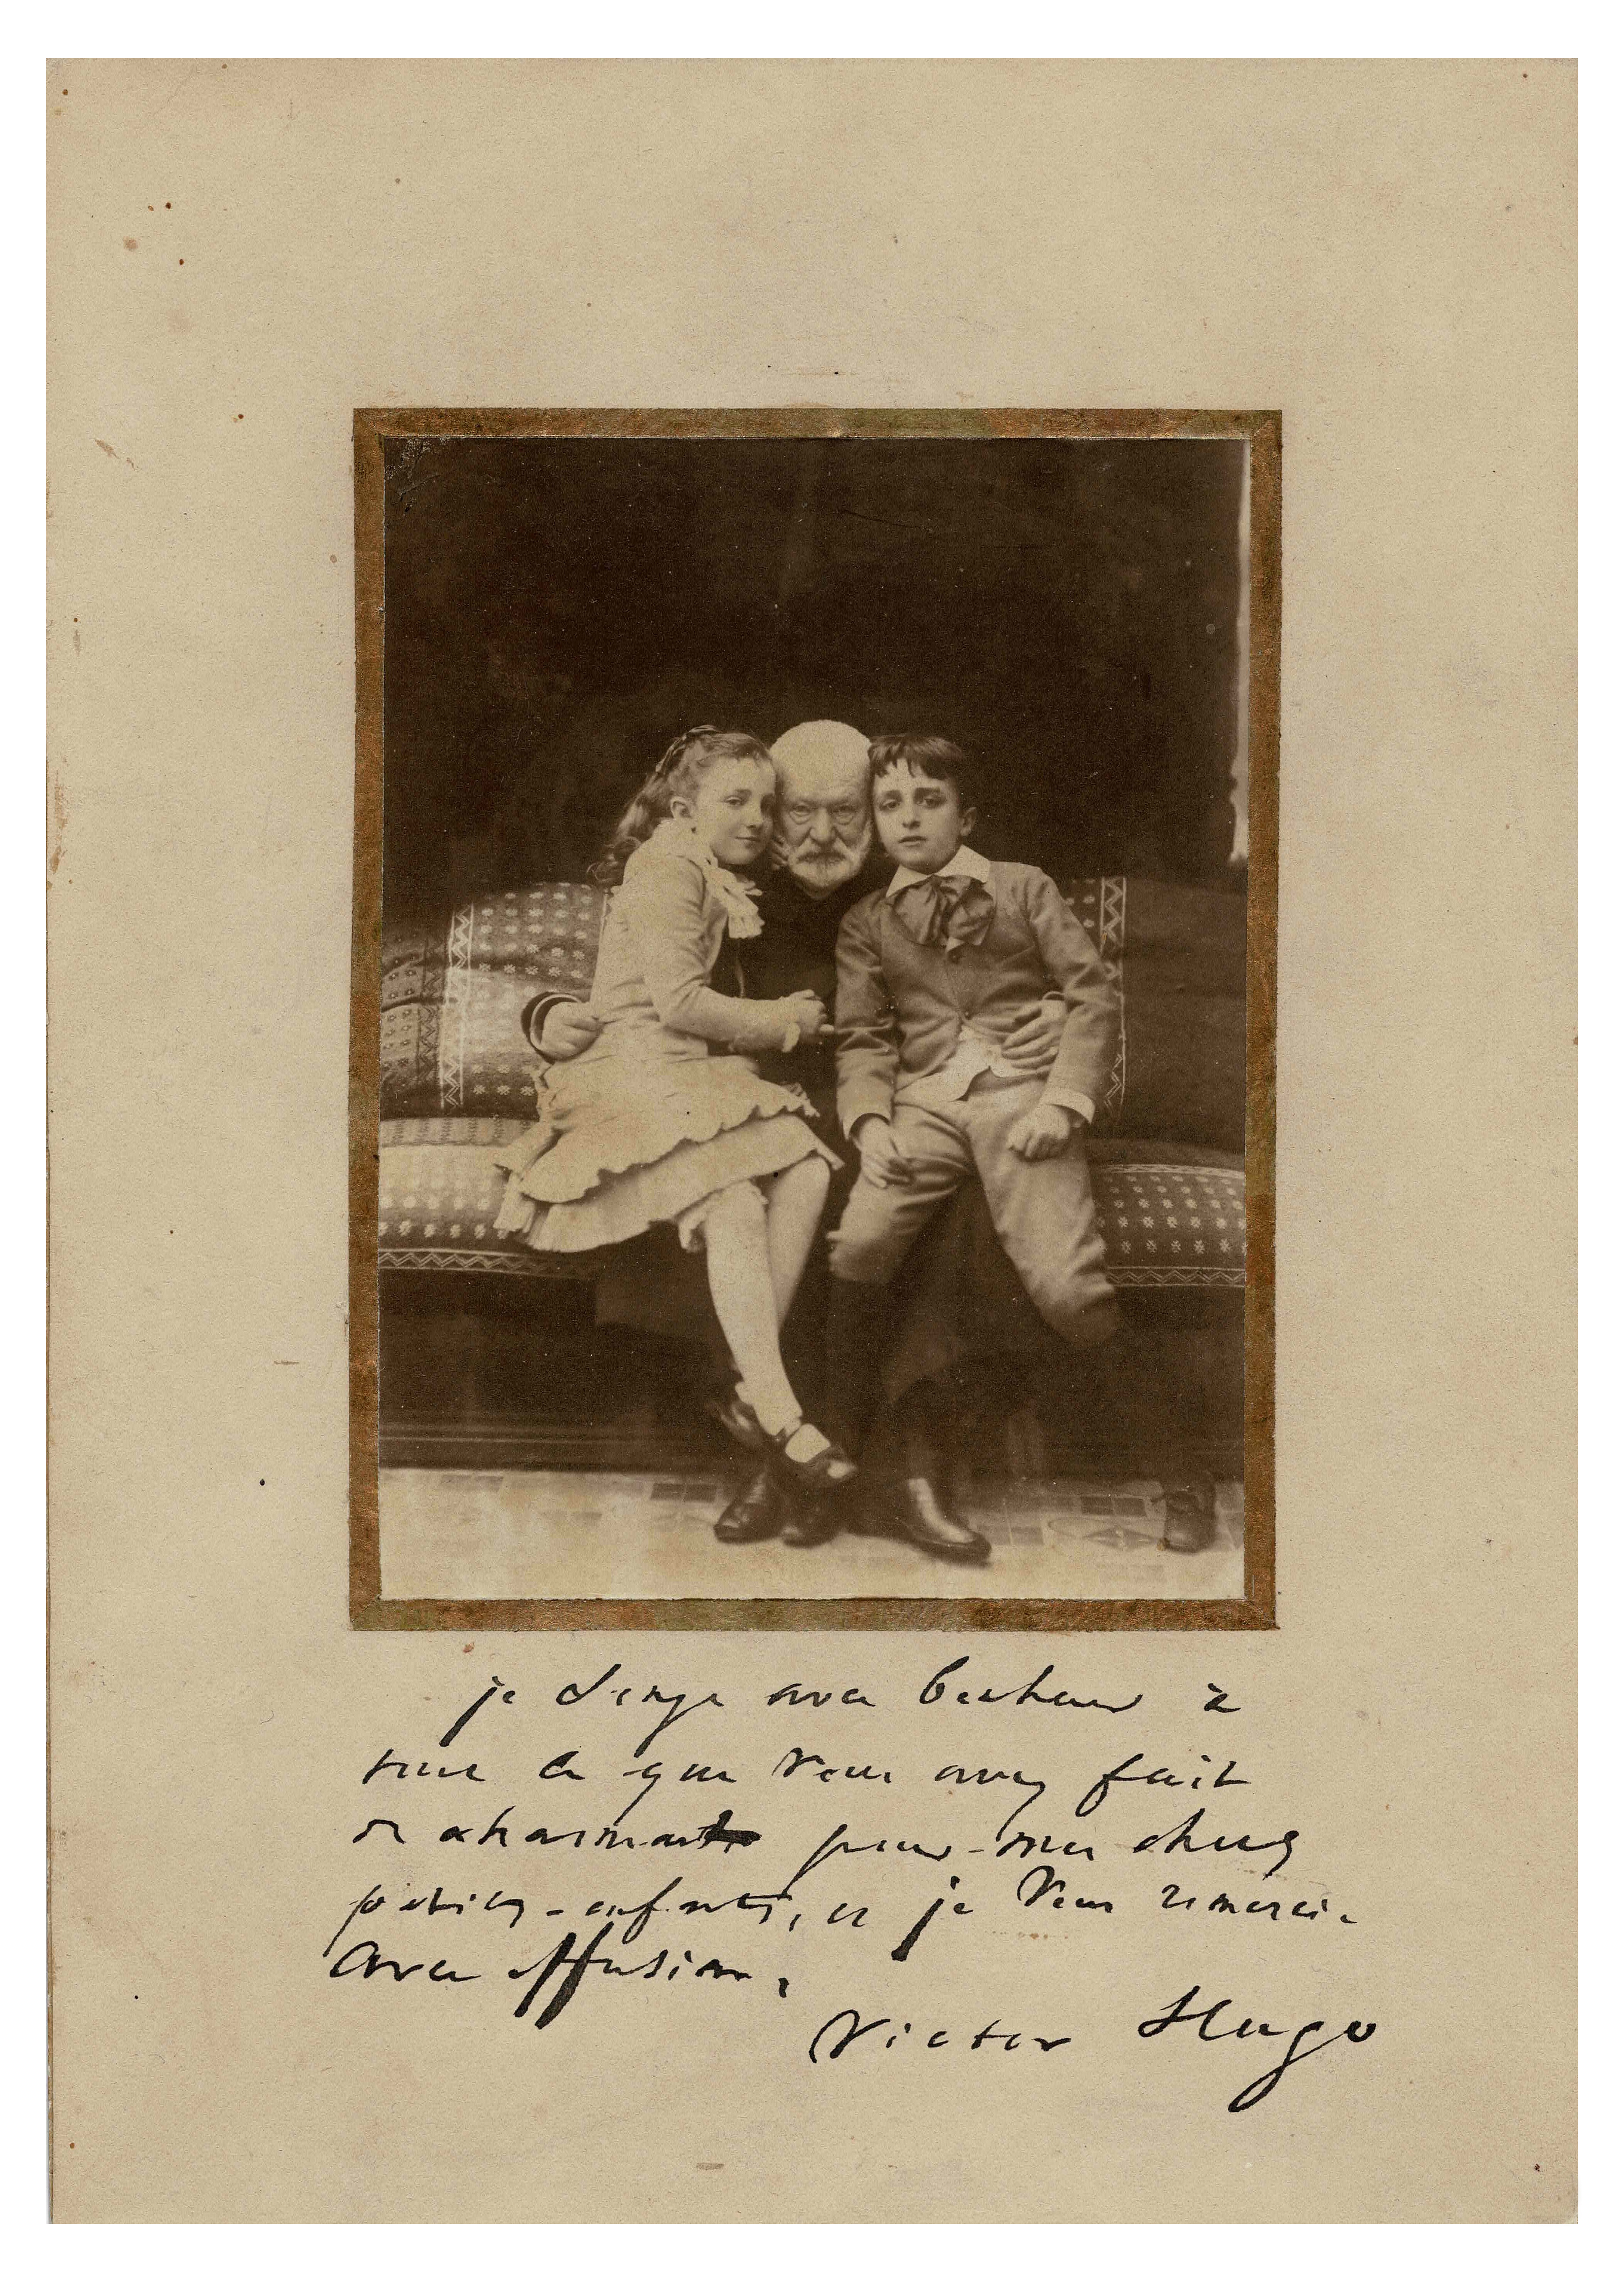 je songe avec bonheur à
tout ce que vous avez fait
de charmant pour mes chers
petits-enfants, et je vous remercie
avec effusion.
Victor Hugo